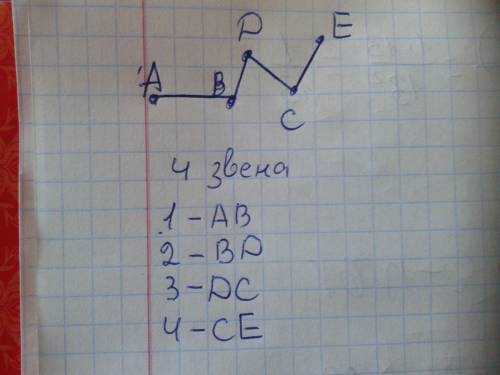 D E
A B
C
4 звена
1 - AB
2 - BD
3 - DC
4 - CE